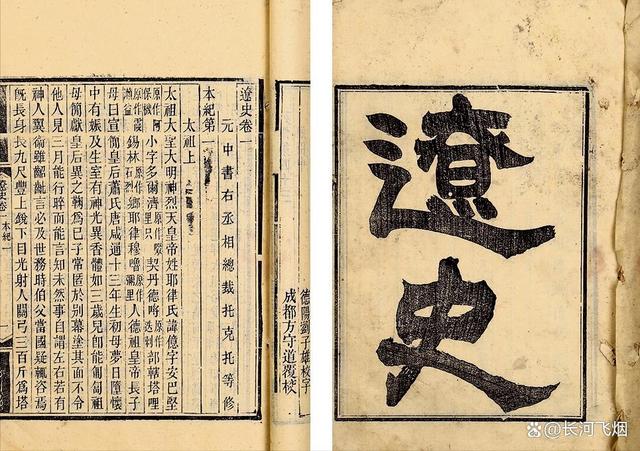 遼史
德陽劉子雄校字
成都方守道覆校
遼史卷一
元中書右丞相總裁托克托等修
本紀第一
太祖上
太祖大聖大明神烈天皇帝姓耶律氏諱億字安巴堅
原作阿保機小字多爾濟原作里只契丹德哷原作迭剌部轄塔哩
原作益錫林石烈鄉耶律穆嚕原作彌里人德祖皇帝長子
母曰宣簡皇后蕭氏唐咸通十三年生初母夢日墮懷
中有娠及生室有神光異香體如三歲兒即能匍匐祖
母簡獻皇后異之鞠為己子常匿於別幕塗其面不令
他人見三月能行晬而能言知未然事自謂左右若有
神人翼衛雖齠齔言必及世務時伯父當國疑輒咨焉
既長身長九尺豐上銳下目光射人關弓三百斤為塔
遼史卷一 本紀一
@长河飞烟